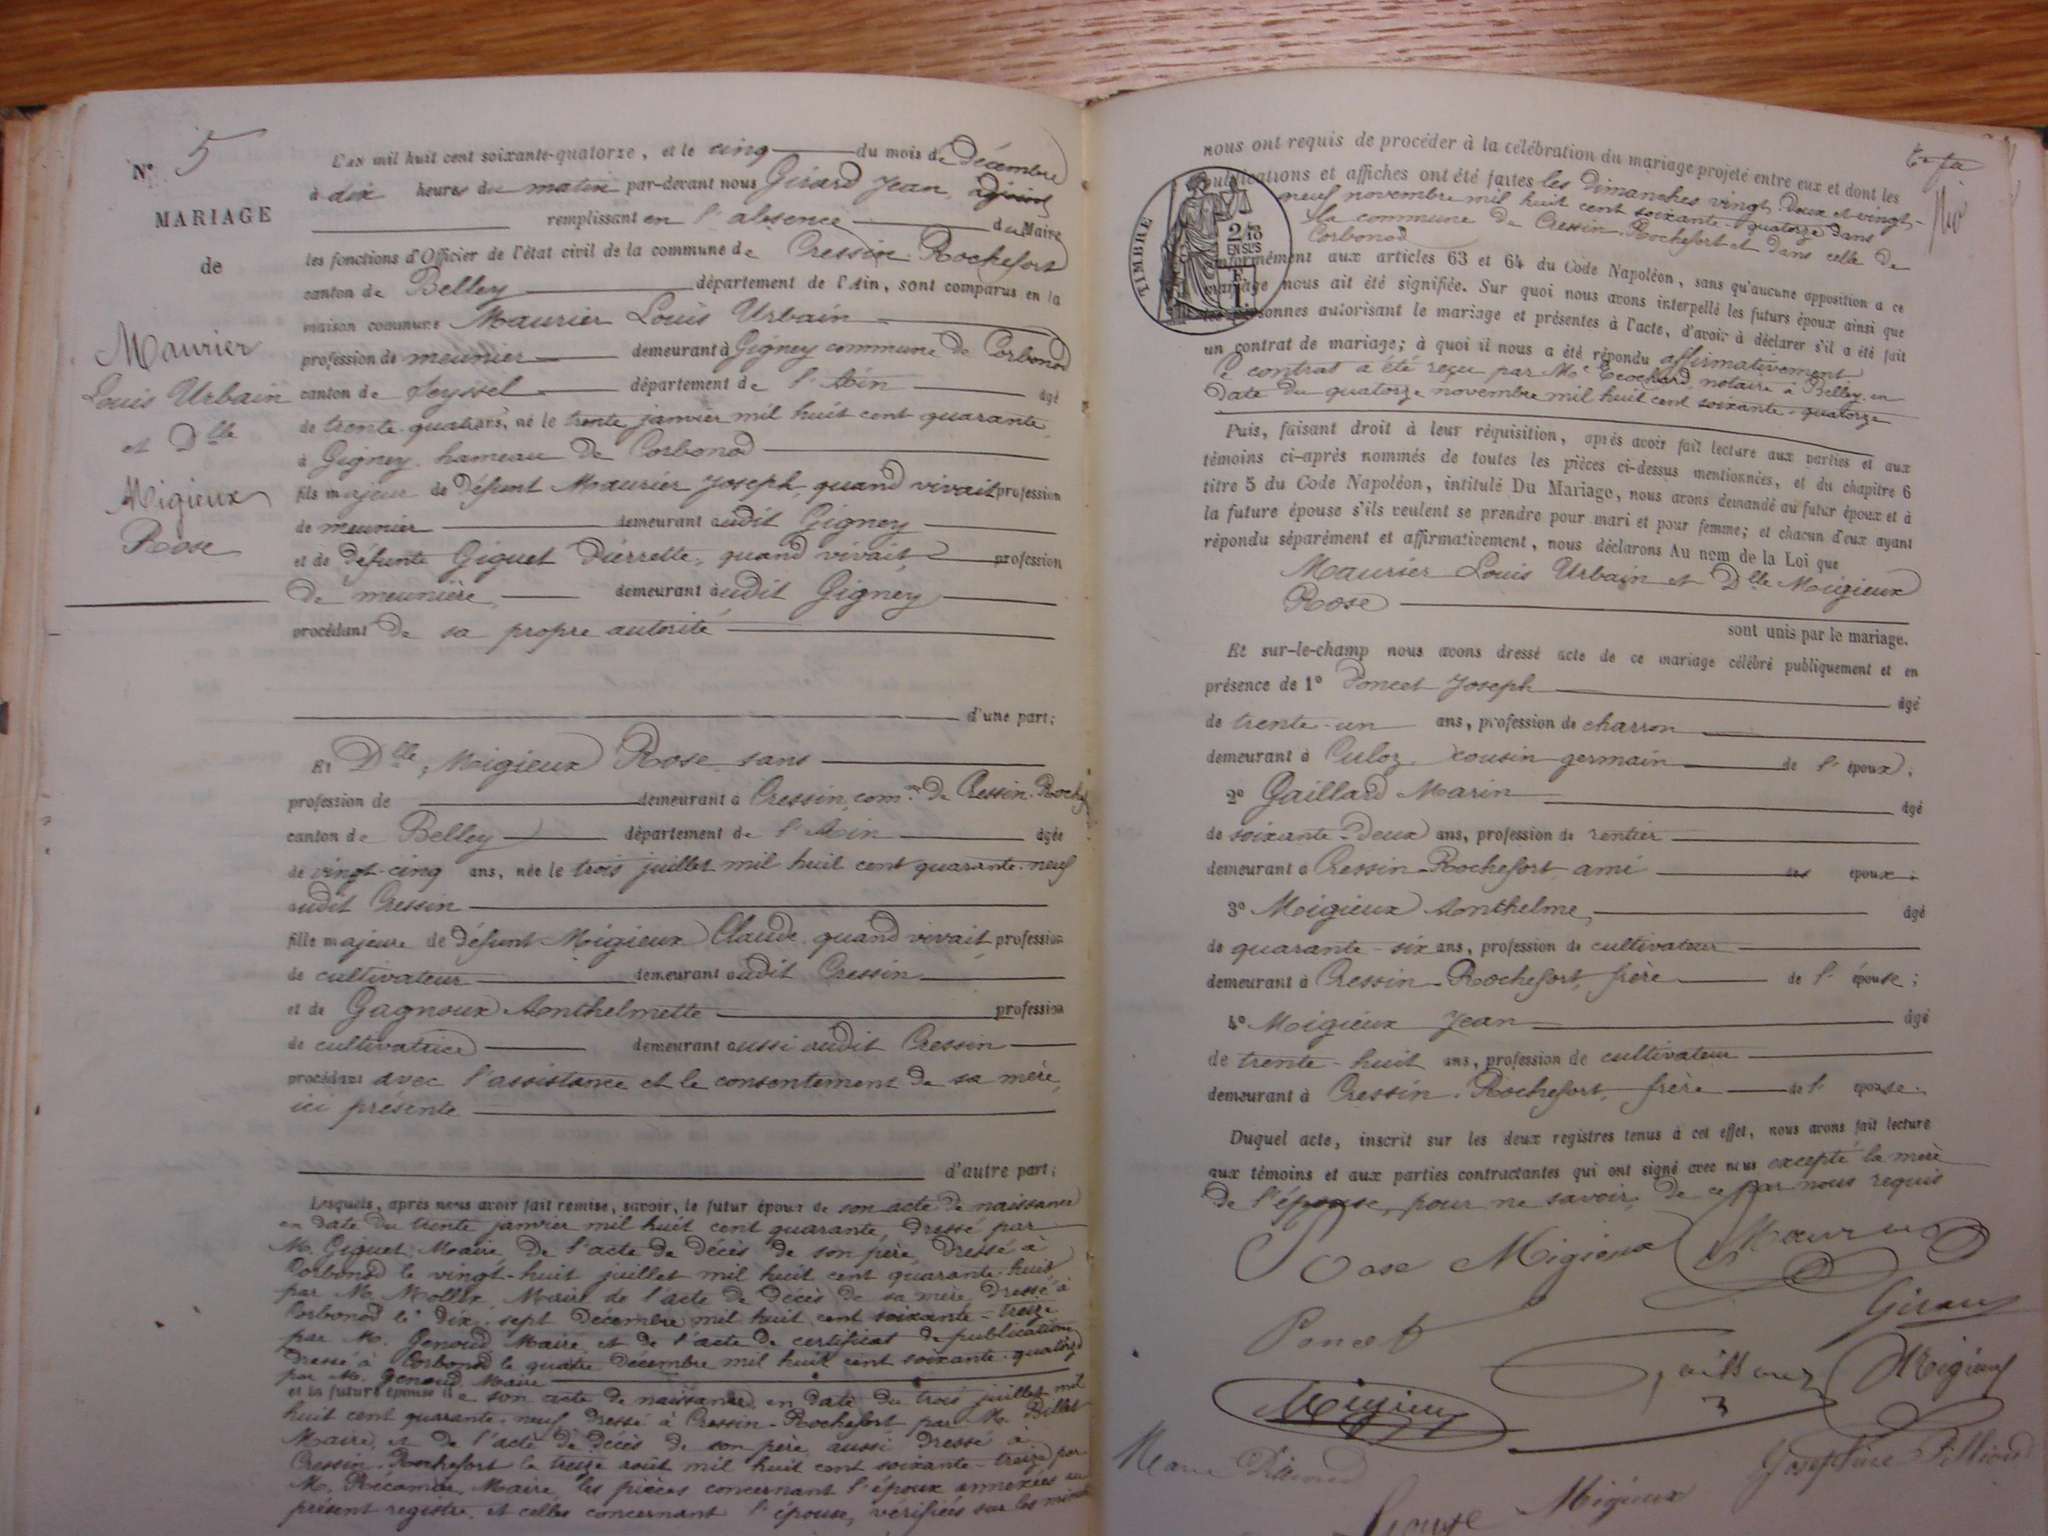 N° 5
MARIAGE
de
Maurier
Louis Urbain
et Dlle
Migieux
Rose
L'an mil huit cent soixante-quatorze, et le cinq du mois de décembre
à dix heures du matin par-devant nous Girard Jean, adjoint
remplissant en l'absence du Maire
les fonctions d'Officier de l'état civil de la commune de Cressin-Rochefort
canton de Belley département de l'Ain, sont comparus en la
maison commune Maurier Louis Urbain
profession de meunier demeurant à Gigney commune de Corbonod
canton de Seyssel département de l'Ain âgé
de trente-quatre ans, né le trente janvier mil huit cent quarante
à Gigney hameau de Corbonod
fils majeur de défunt Maurier Joseph, quand vivait profession
de meunier demeurant audit Gigney
et de défunte Giguet Pierrette, quand vivait, profession
de meunière, demeurant audit Gigney
procédant de sa propre autorité
d'une part;
Et Dlle Migieux Rose sans
profession de demeurant à Cressin, comne de Cressin-Rochef
canton de Belley département de l'Ain âgée
de vingt-cinq ans, née le trois juillet mil huit cent quarante-neuf
audit Cressin
fille majeure de défunt Migieux Claude, quand vivait, profession
de cultivateur demeurant audit Cressin
et de Gagnoux Anthelmette profession
de cultivatrice demeurant aussi audit Cressin
procédant avec l'assistance et le consentement de sa mère,
ici présente
d'autre part;
Lesquels, après nous avoir fait remise, savoir, le futur époux de son acte de naissance
en date du trente janvier mil huit cent quarante, dressé par
M. Giguet, Maire, de l'acte de décès de son père, dressé à
Corbonod le vingt-huit juillet mil huit cent quarante-huit
par M. Mollex, Maire de l'acte de décès de sa mère, dressé à
Corbonod le dix-sept décembre mil huit cent soixante-treize
par M. Genoud, Maire, et de l'acte de certificat de publications
dressé à Corbonod le quatre décembre mil huit cent soixante-quatorze
par M. Genoud, Maire
et la future épouse de son acte de naissance en date du trois juillet mil
huit cent quarante-neuf dressé à Cressin-Rochefort par M. Billet
Maire, et de l'acte de décès de son père aussi dressé à
Cressin-Rochefort le treize août mil huit cent soixante-treize par
M. Récamier, Maire, les pièces concernant l'époux annexées au
présent registre, et celles concernant l'épouse, vérifiées sur les
nous ont requis de procéder à la célébration du mariage projeté entre eux et dont les
publications et affiches ont été faites les dimanches vingt-deux et vingt-
neuf novembre mil huit cent soixante-quatorze dans
la commune de Cressin-Rochefort et dans celle de
Corbonod
TIMBRE
2/10
EN SUS
conformément aux articles 63 et 64 du Code Napoléon, sans qu'aucune opposition à ce
mariage nous ait été signifiée. Sur quoi nous avons interpellé les futurs époux ainsi que
les personnes autorisant le mariage et présentes à l'acte, d'avoir à déclarer s'il a été fait
un contrat de mariage; à quoi il nous a été répondu affirmativement
Ce contrat a été reçu par Me notaire à Belley en
date du quatorze novembre mil huit cent soixante-quatorze
Puis, faisant droit à leur réquisition, après avoir fait lecture aux parties et aux
témoins ci-après nommés de toutes les pièces ci-dessus mentionnées, et du chapitre 6
titre 5 du Code Napoléon, intitulé Du Mariage, nous avons demandé au futur époux et à
la future épouse s'ils veulent se prendre pour mari et pour femme; et chacun d'eux ayant
répondu séparément et affirmativement, nous déclarons Au nom de la Loi que
Maurier Louis Urbain et Dlle Migieux
Rose
sont unis par le mariage.
Et sur-le-champ nous avons dressé acte de ce mariage célébré publiquement et en
présence de 1° Poncet Joseph âgé
de trente-un ans, profession de charron
demeurant à Culoz, cousin germain de l'époux;
2° Gaillard Marin âgé
de soixante-deux ans, profession de rentier
demeurant à Cressin-Rochefort ami des époux;
3° Migieux Anthelme, âgé
de quarante-six ans, profession de cultivateur
demeurant à Cressin-Rochefort, frère de l'épouse;
4° Migieux Jean âgé
de trente-huit ans, profession de cultivateur
demeurant à Cressin-Rochefort, frère de l'épouse.
Duquel acte, inscrit sur les deux registres tenus à cet effet, nous avons fait lecture
aux témoins et aux parties contractantes qui ont signé avec nous excepté la mère
de l'épouse, pour ne savoir, de ce par nous requis
Rose Migieux Maurier
Girard
Poncet Gaillard Migieux
Migieux
Marie Josephine Pillion
Louise Migieux